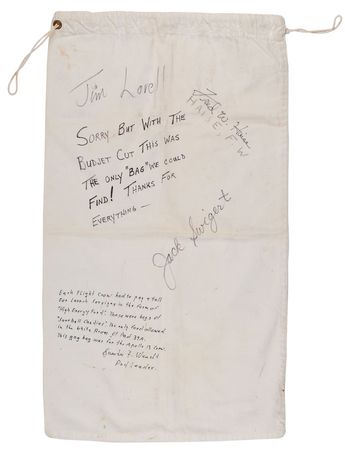 Jim Lovell
Fred W. Haise
HAISE, F W
SORRY BUT WITH THE
BUDJET CUT THIS WAS
THE ONLY "BAG" WE COULD
FIND! THANKS FOR
EVERYTHING —
Jack Swigert
Each Flight Crew had to pay a toll
for launch servicing in the form of
"High Energy Food". These were bags of
"Candies". The only food allowed
in the White Room at Pad 39A.
This gag bag was for the Apollo 13 Crew.
Guenter F. Wendt
Pad Leader.